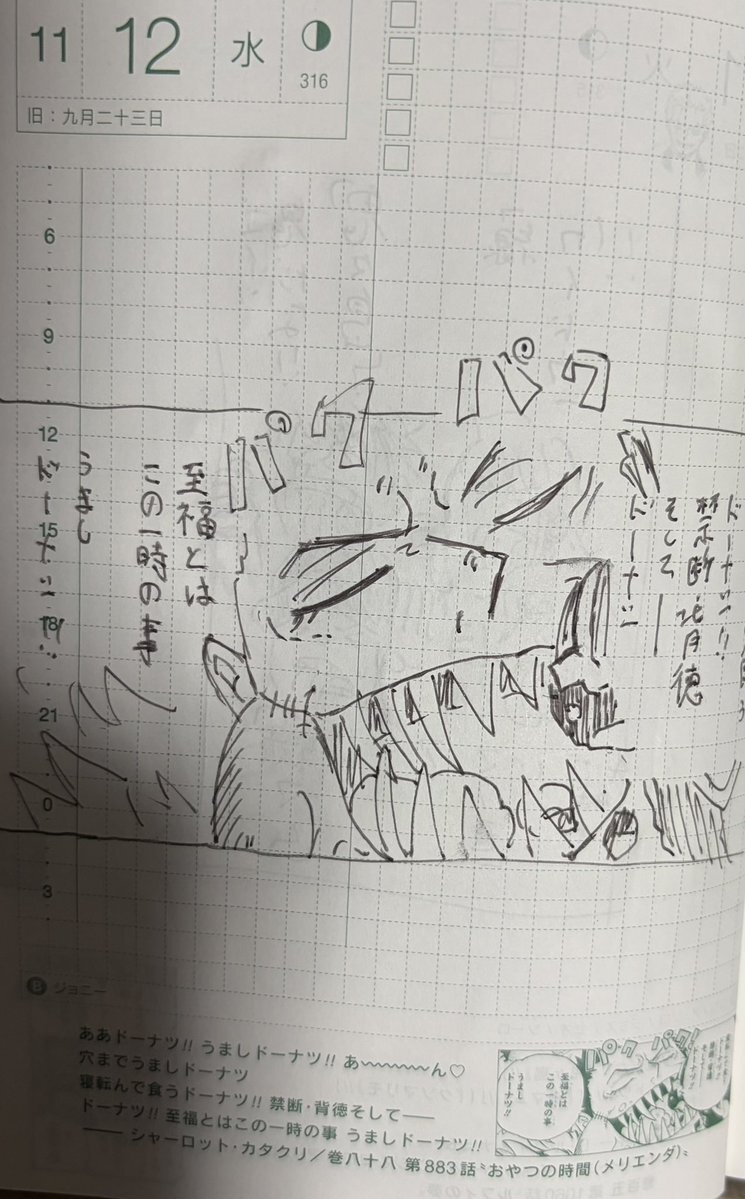 11 12 水
316
旧：九月二十三日
6
9
12
15
18
21
0
3
パク
パク
ドーナツ!!
禁断・背徳
そして――
ドーナツ
至福とは
この一時の事
うまし
ドーナツ!!
B ジョニー
ああドーナツ!! うましドーナツ!! あ〜〜〜〜〜〜ん♡
穴までうましドーナツ
寝転んで食うドーナツ!! 禁断・背徳そして――
ドーナツ!! 至福とはこの一時の事 うましドーナツ!!
―― シャーロット・カタクリ／巻八十八 第883話“おやつの時間（メリエンダ）”
パク パク
至福とは
この一時の事
うまし
ドーナツ!!